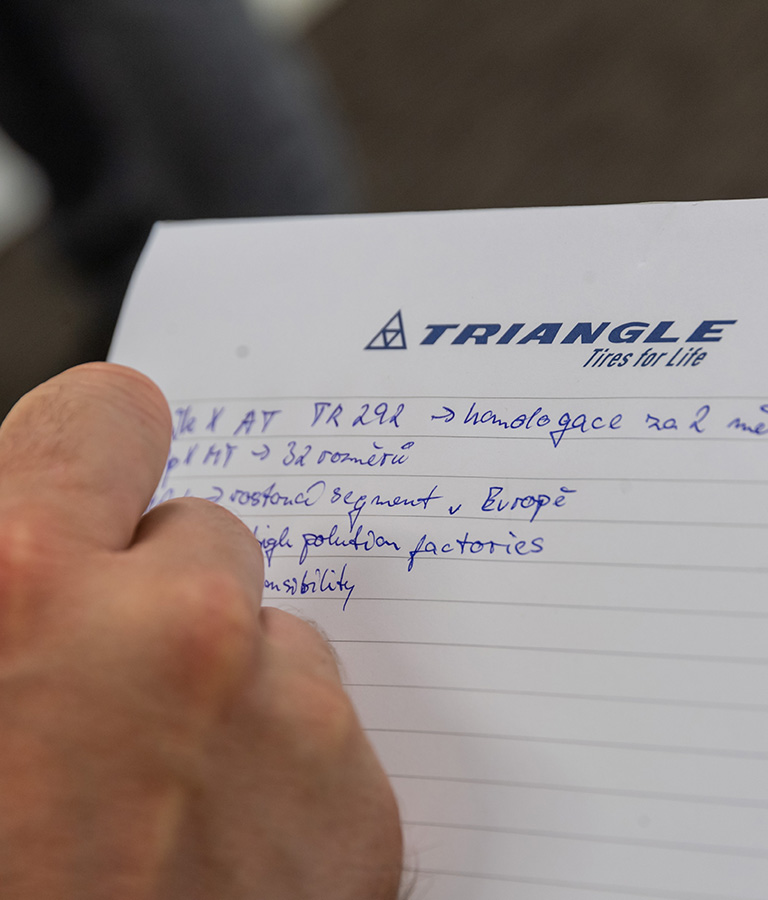 TRIANGLE
Tires for Life
X AT TR 292 → homologace za 2
X MT → 32 rozměrů
→ rostoucí segment v Evropě
high polution factories
onsibility